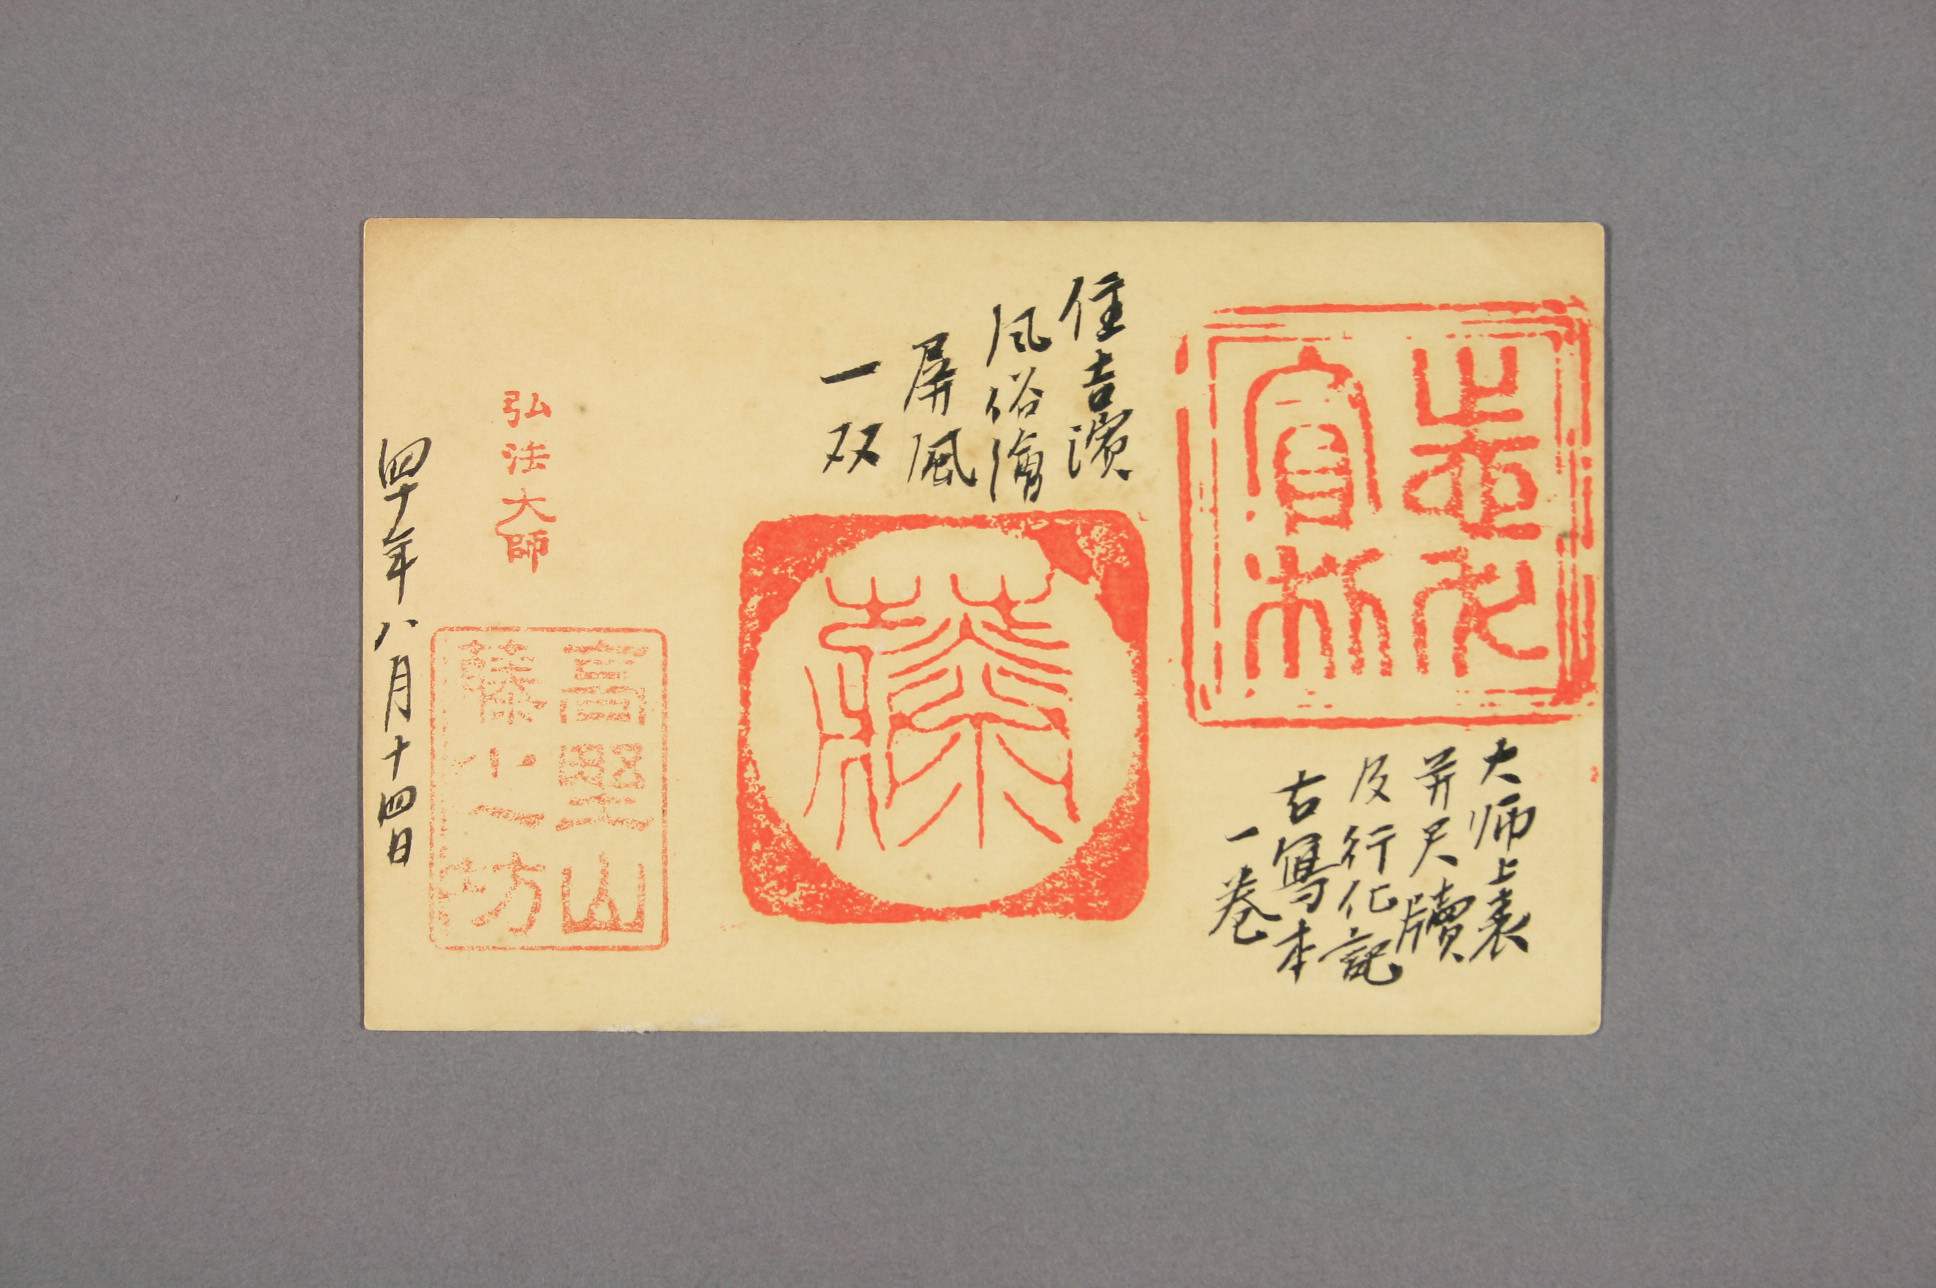 住吉濱
風俗繪
屏風
一双
大师上表
并尺牘
及行化記
古寫本
一巻
藤
弘法大師
高野山
藤之坊
四十年八月十四日